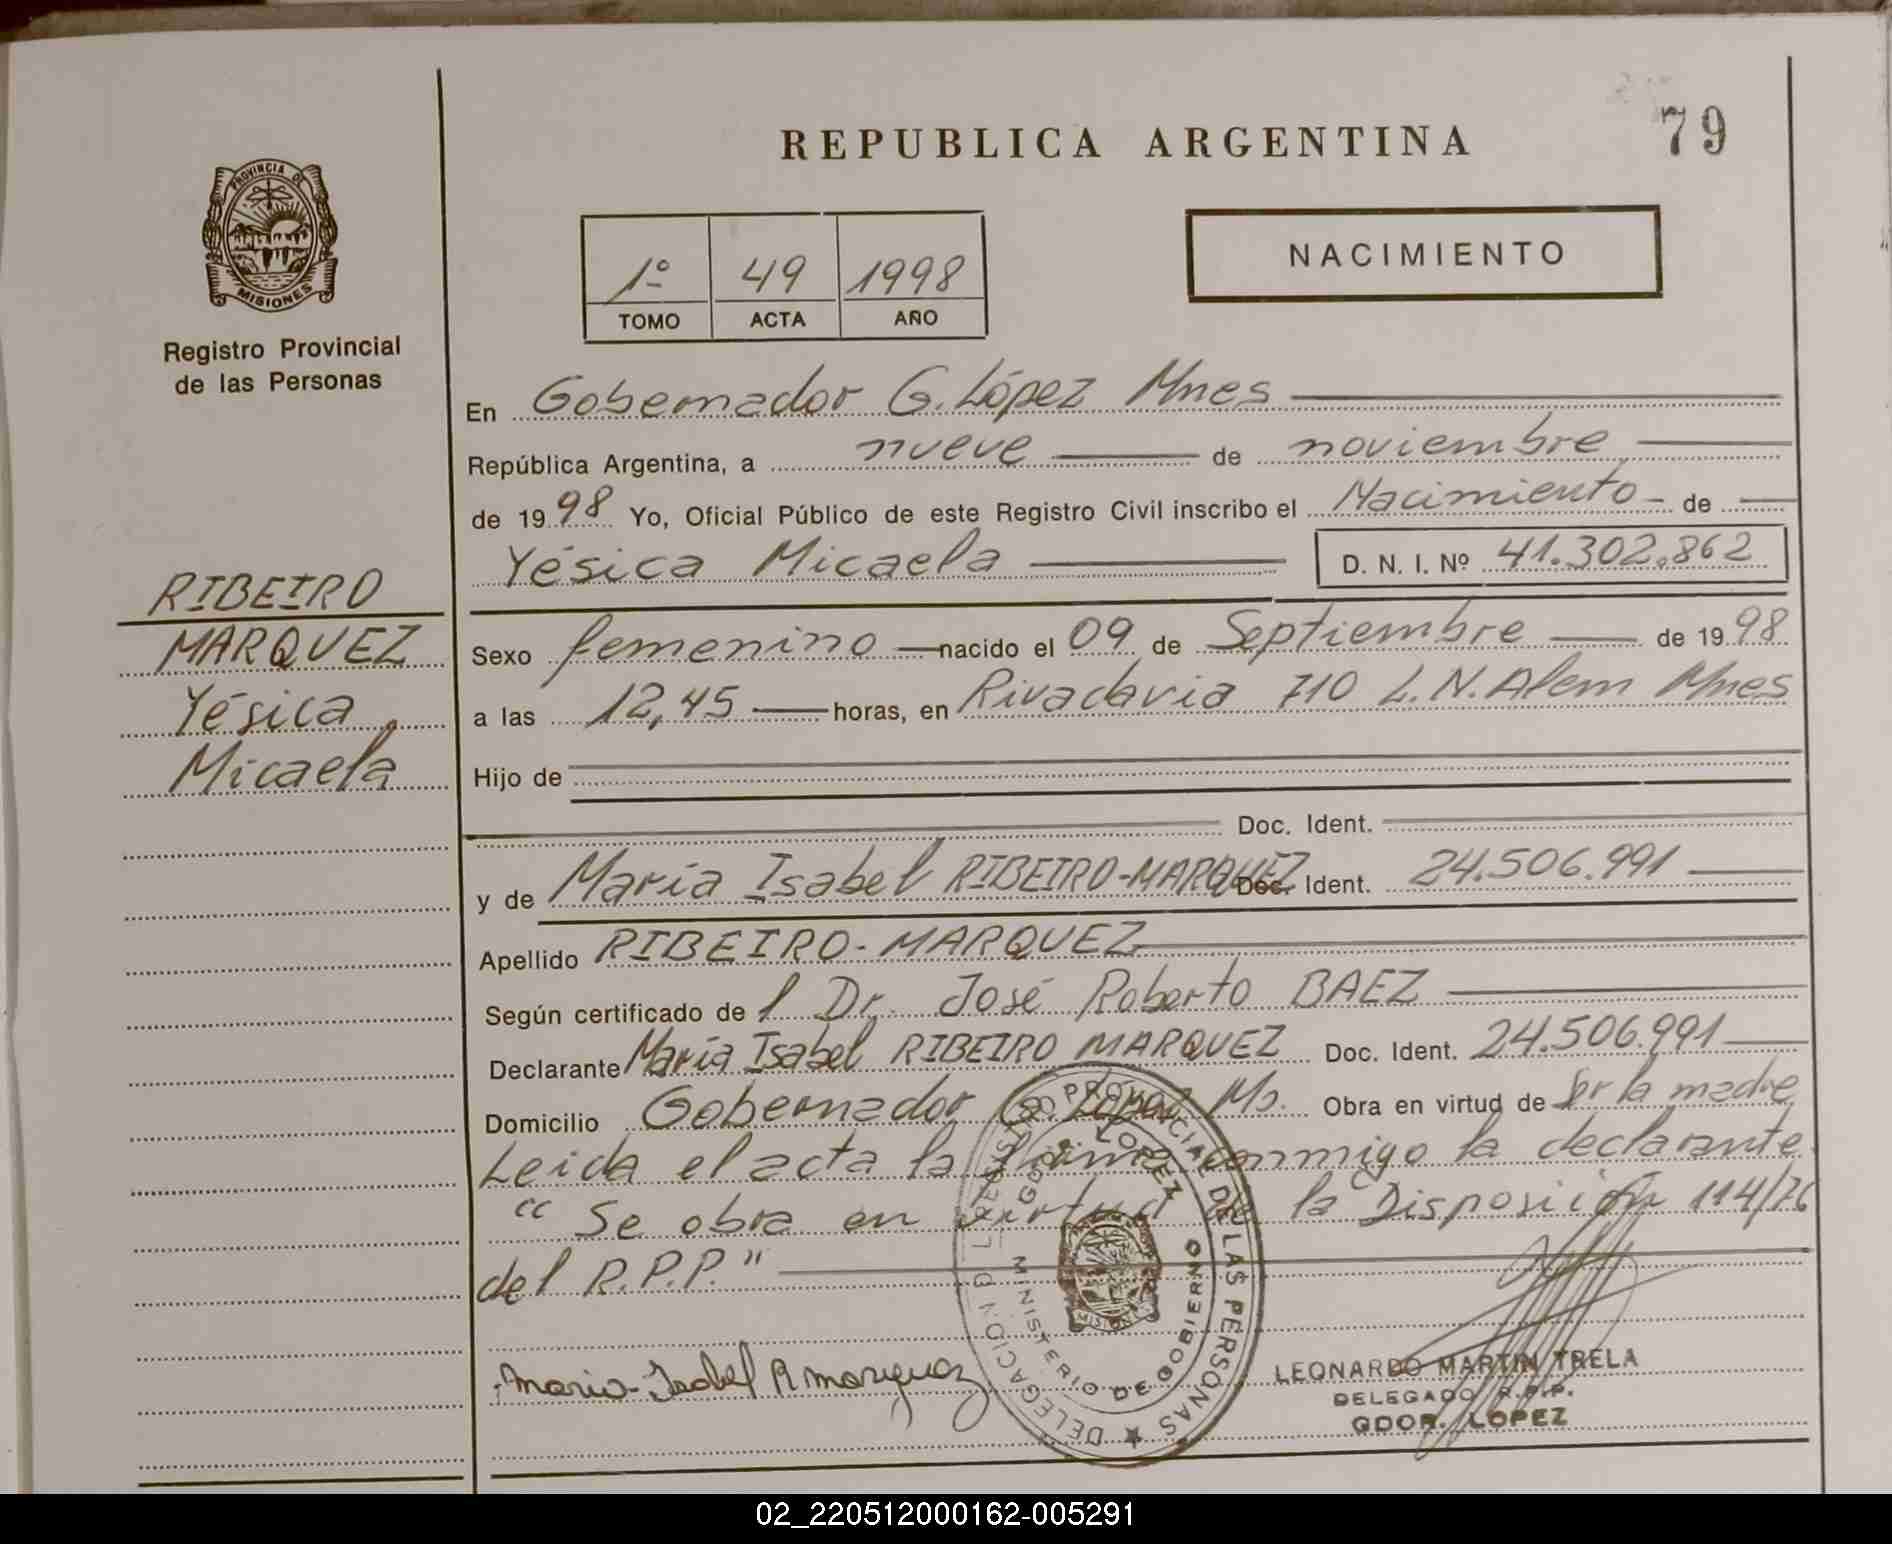 REPUBLICA ARGENTINA
79
PROVINCIA DE
MISIONES
Registro Provincial
de las Personas
1º 49 1998
TOMO ACTA AÑO
NACIMIENTO
RIBEIRO
MARQUEZ
Yésica
Micaela
En Gobernador G. López Mnes
República Argentina, a nueve de noviembre
de 1998 Yo, Oficial Público de este Registro Civil inscribo el Nacimiento de
Yésica Micaela D. N. I. Nº 41.302.862
Sexo femenino nacido el 09 de Septiembre de 1998
a las 12,45 horas, en Rivadavia 710 L.N. Alem Mnes
Hijo de
Doc. Ident.
y de María Isabel RIBEIRO-MARQUEZ Doc. Ident. 24.506.991
Apellido RIBEIRO-MARQUEZ
Según certificado de l Dr. José Roberto BAEZ
Declarante María Isabel RIBEIRO MARQUEZ Doc. Ident. 24.506.991
Domicilio Gobernador G. López Ms. Obra en virtud de Ser la madre
Leida el acta la firma conmigo la declarante
“Se obra en virtud de la Disposición 114/76
del R.P.P.”
Maria Isabel R marquez
REGISTRO PROVINCIAL DE LAS PERSONAS ★ DELEGACION
GDOR. LOPEZ
MINISTERIO DE GOBIERNO
MISIONES
LEONARDO MARTIN TRELA
DELEGADO R.P.P.
GDOR. LOPEZ
02_220512000162-005291